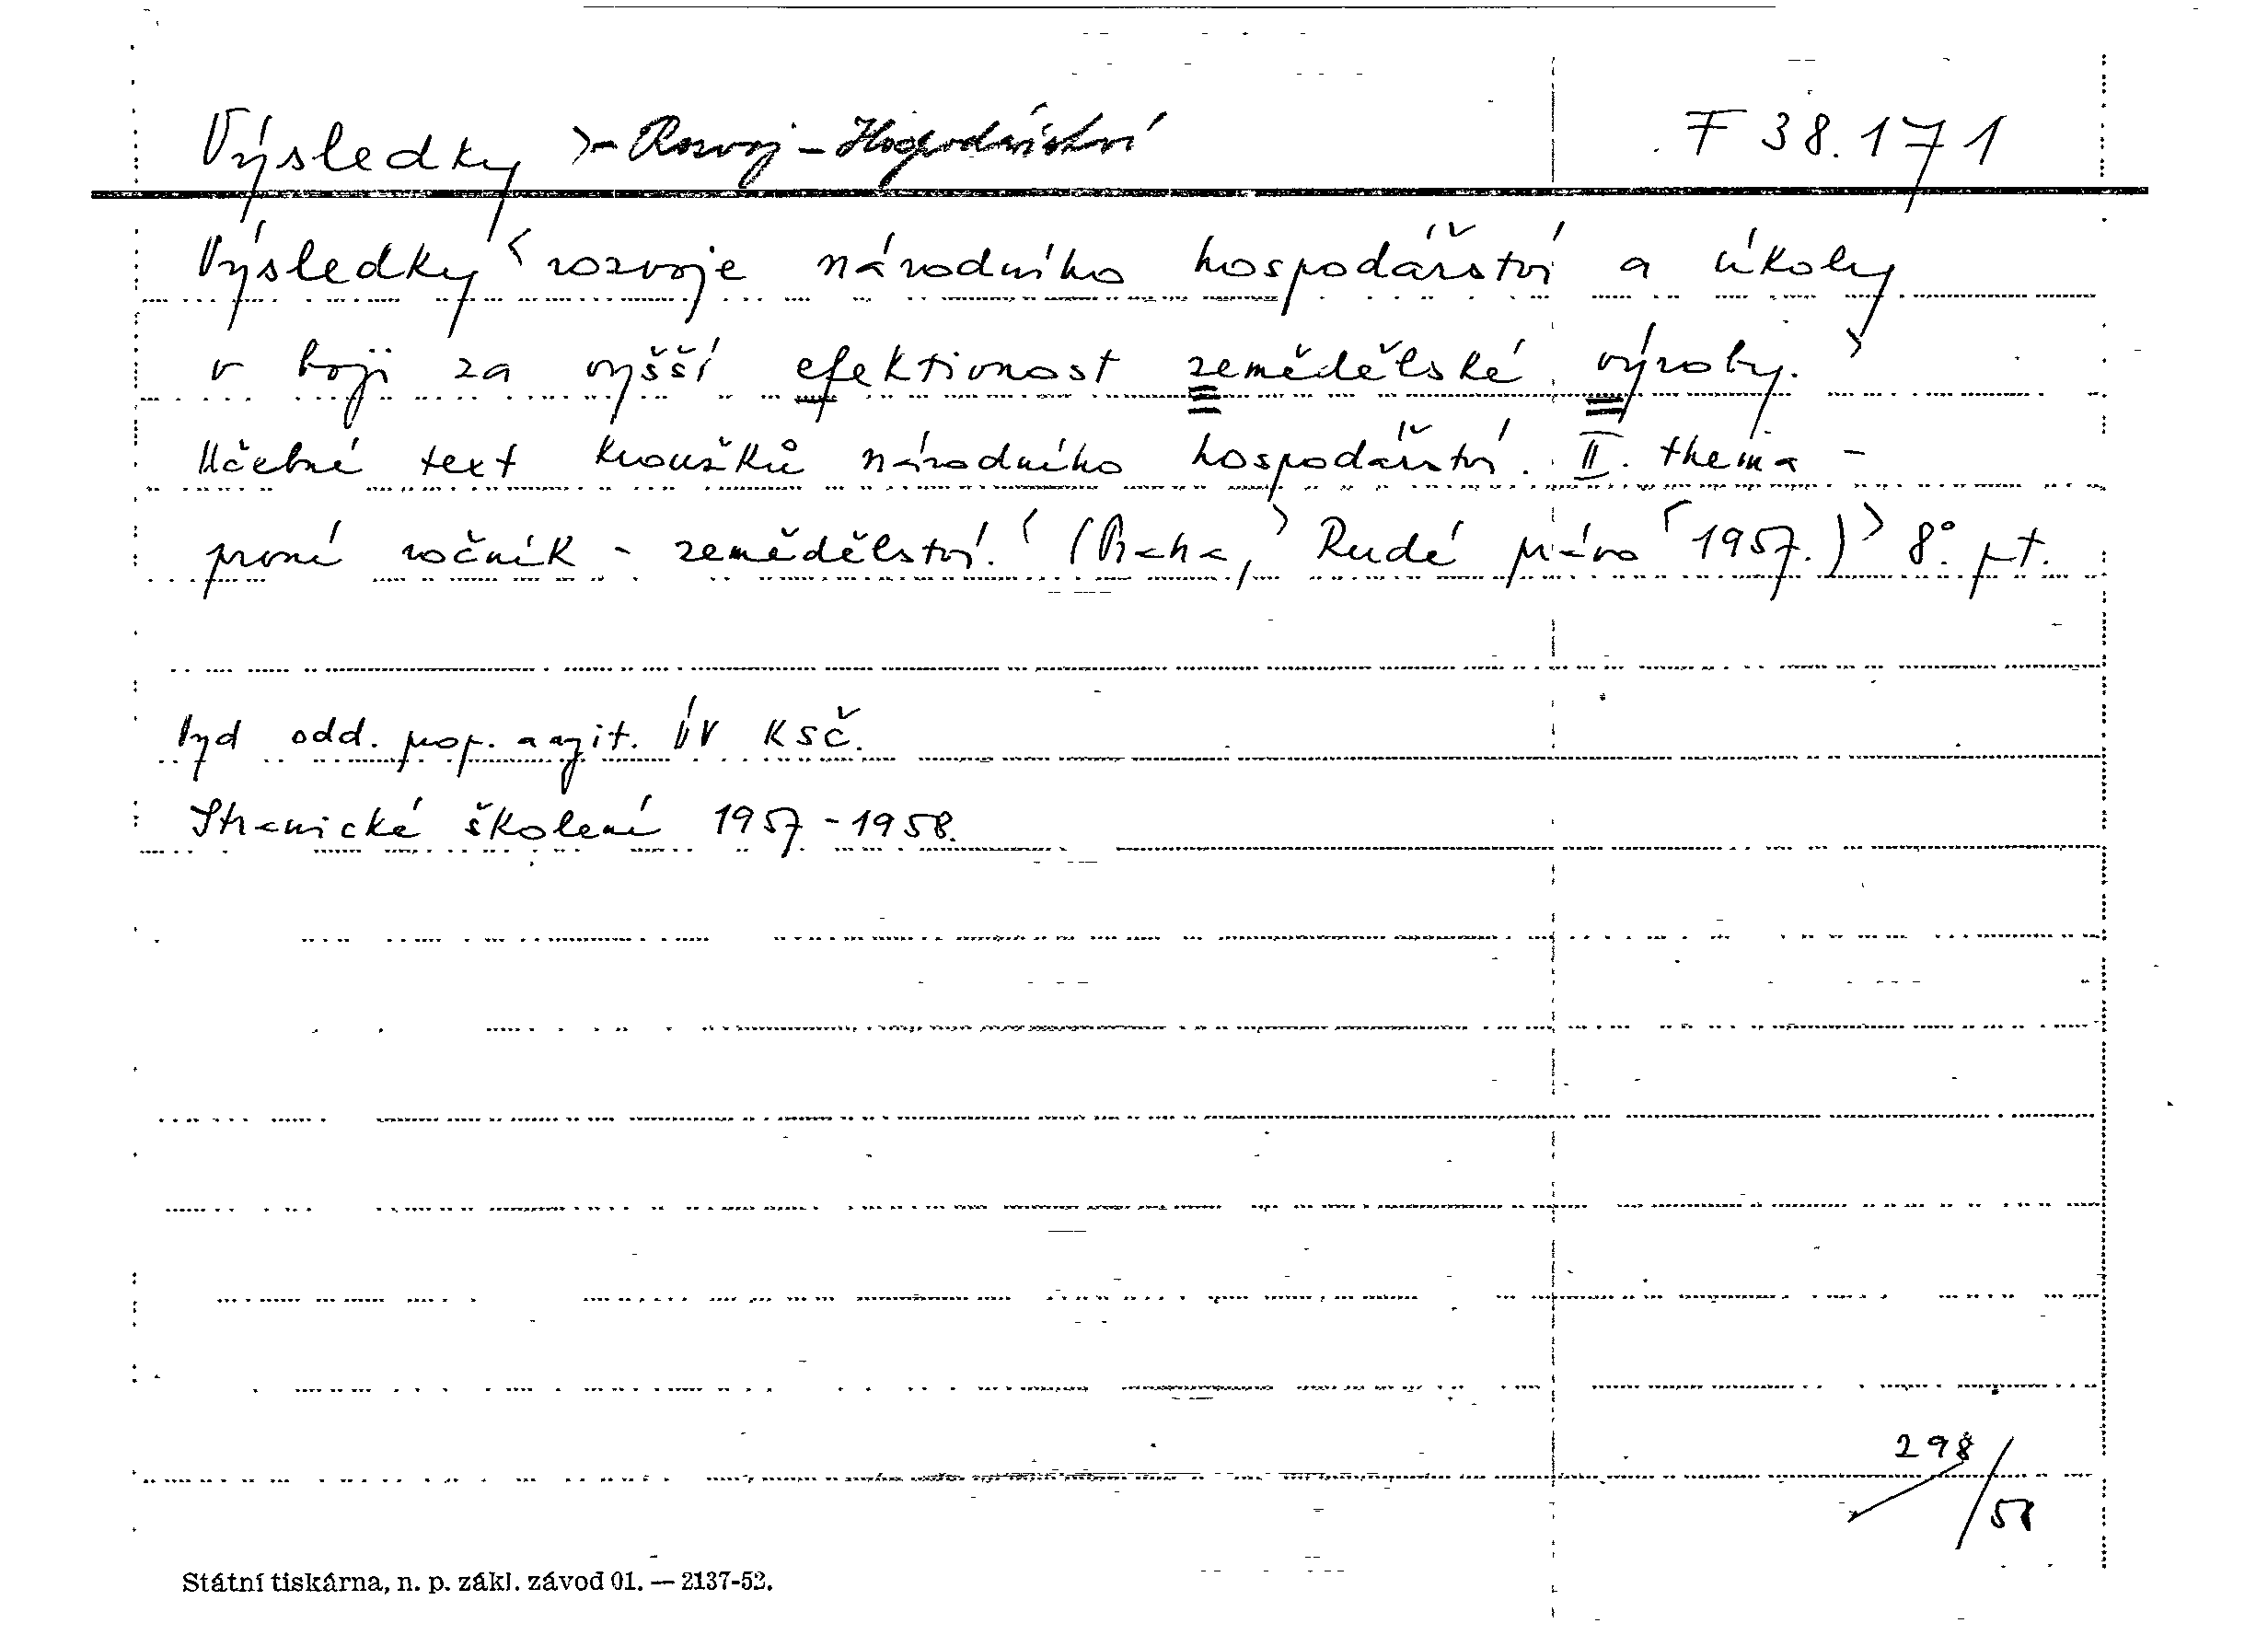 Výsledky - Rozvoj - Hospodářství F 38.171
Výsledky rozvoje národního hospodářství a úkoly
v boji za vyšší efektivnost zemědělské výroby.
Učebné text kroužků národního hospodářství. II. thema -
první ročník - zemědělství. (Praha, Rudé právo 1957.) 8°. pt.
Vyd odd. prop. a agit. ÚV KSČ.
Stranické školení 1957-1958.
298/58
Státní tiskárna, n. p. zákl. závod 01. — 2137-52.